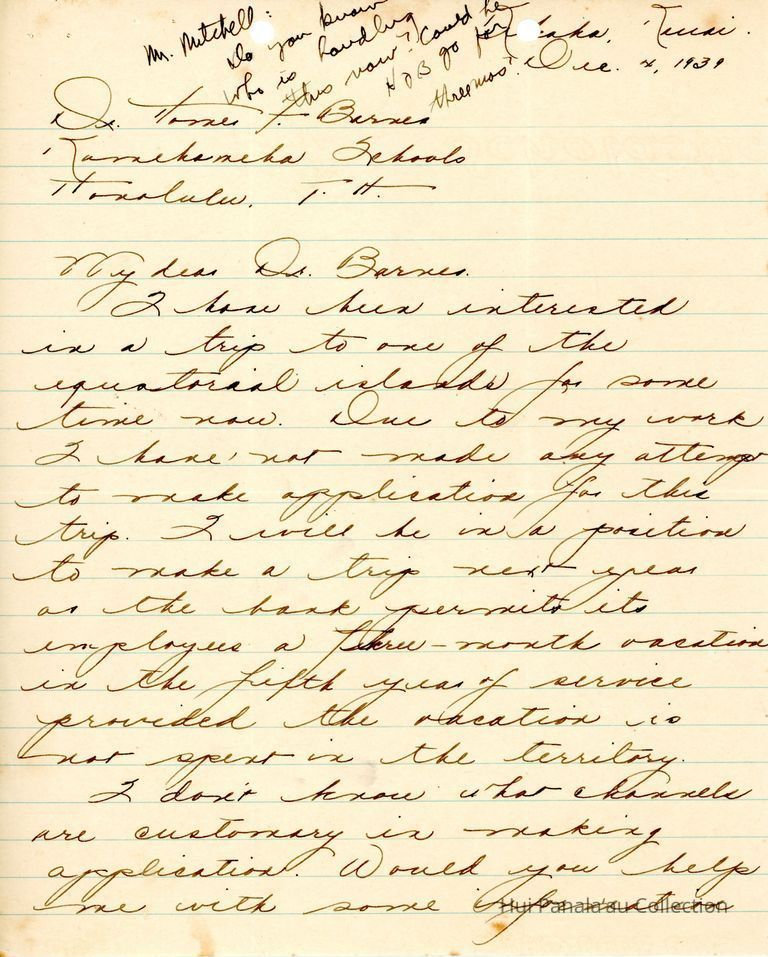 Mr. Mitchell:
Do you know
who is handling
this now? Could he
go for
three mos?
Kekaha, Kauai.
Dec. 4, 1939
Dr. Homer F. Barnes
Kamehameha Schools
Honolulu, T. H.
My dear Dr. Barnes.
I have been interested
in a trip to one of the
equatorial islands for some
time now. Due to my work
I have not made any attemp
to make application for this
trip. I will be in a position
to make a trip next year
as the bank permits its
employees a three-month vacation
in the fifth year of service
provided the vacation is
not spent in the territory.
I don't know what channels
are customary in making
application. Would you help
me with some information
Hui Panala'au Collection